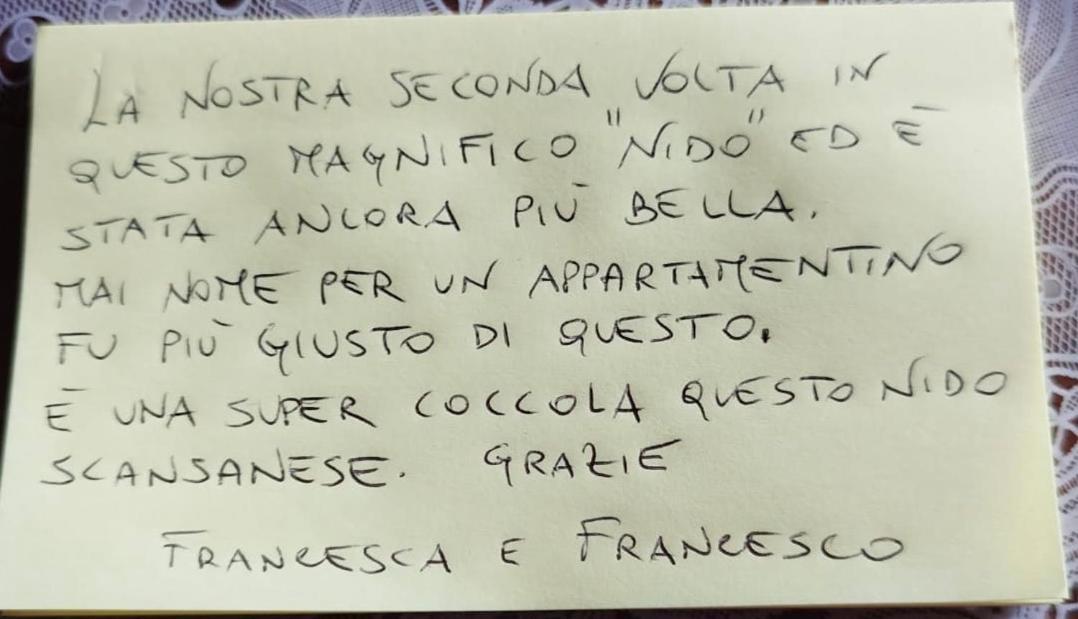 LA NOSTRA SECONDA VOLTA IN
QUESTO MAGNIFICO "NIDO" ED È
STATA ANCORA PIÙ BELLA.
MAI NOME PER UN APPARTAMENTINO
FU PIÙ GIUSTO DI QUESTO.
È UNA SUPER COCCOLA QUESTO NIDO
SCANSANESE. GRAZIE
FRANCESCA E FRANCESCO